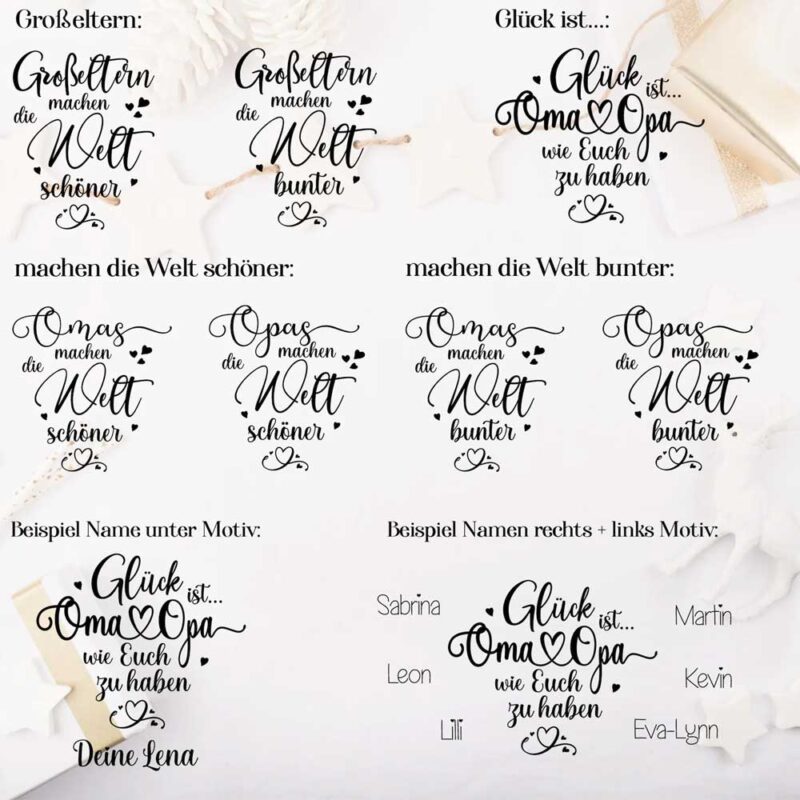 Großeltern:
Großeltern
machen
die
Welt
schöner
Großeltern
machen
die
Welt
bunter
Glück ist...:
Glück
ist...
Oma Opa
wie Euch
zu haben
machen die Welt schöner:
Omas
machen
die
Welt
schöner
Opas
machen
die
Welt
schöner
machen die Welt bunter:
Omas
machen
die
Welt
bunter
Opas
machen
die
Welt
bunter
Beispiel Name unter Motiv:
Glück
ist...
Oma Opa
wie Euch
zu haben
Deine Lena
Beispiel Namen rechts + links Motiv:
Sabrina
Leon
Lilli
Glück
ist...
Oma Opa
wie Euch
zu haben
Martin
Kevin
Eva-Lynn